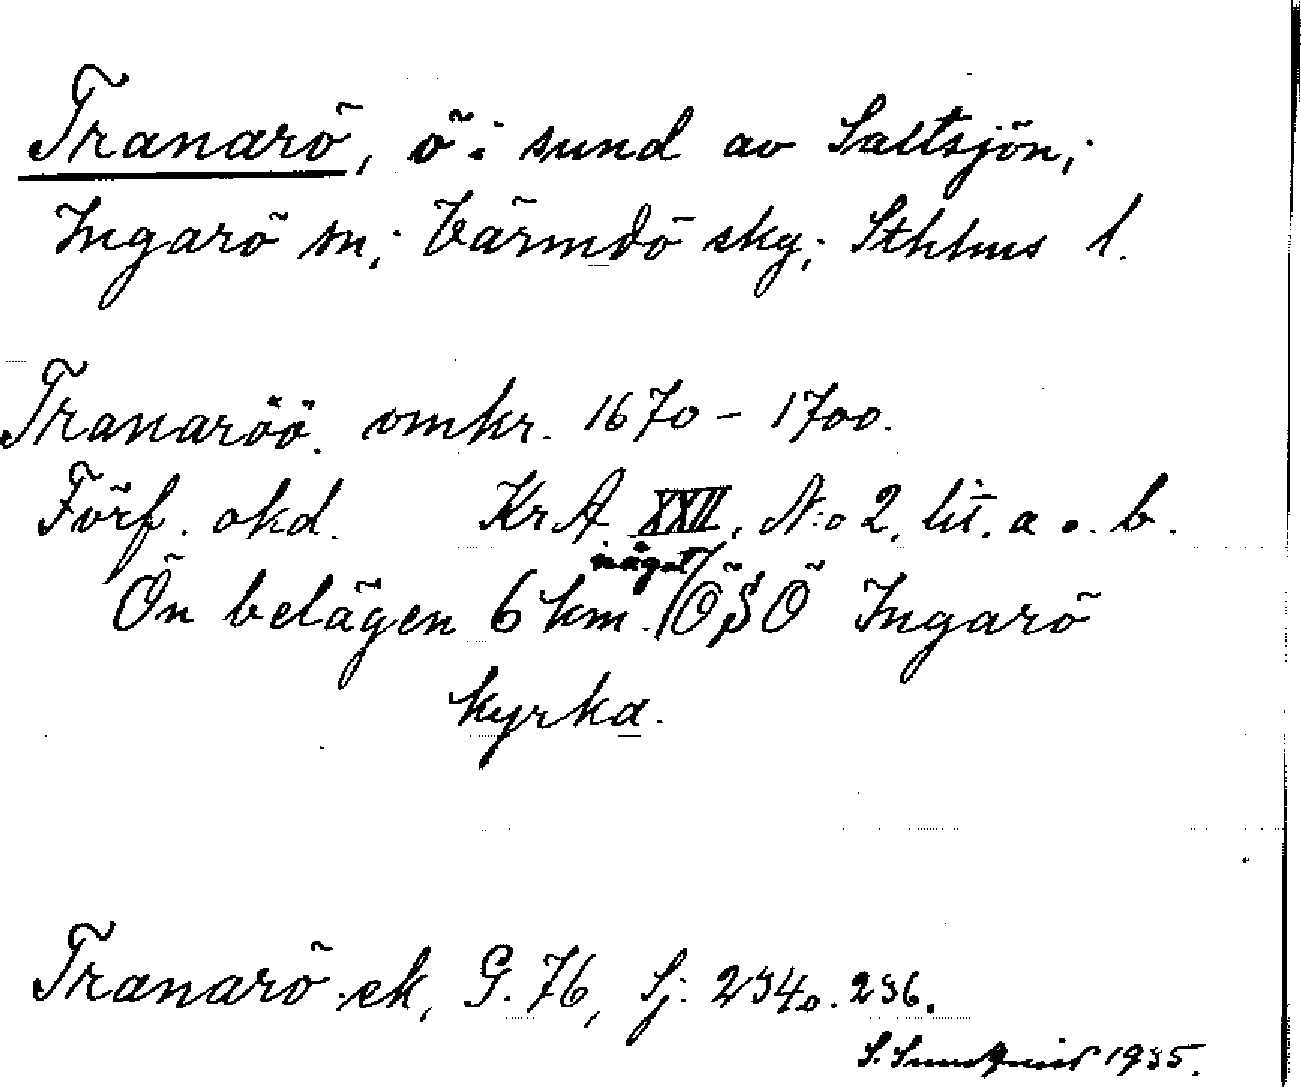 Tranarö, ö i sund av Saltsjön;
Ingarö sn; Värmdö skg; Sthlms l.
Tranaröö. omkr. 1670-1700.
Förf. okd. KrA. XXII, N:o 2, lit. a o. b.
något
Ön belägen 6 km. ÖSÖ Ingarö
kyrka.
Tranarö ek, G. 76, Sj: 234 o. 236.
S. Sundqvist 1935.